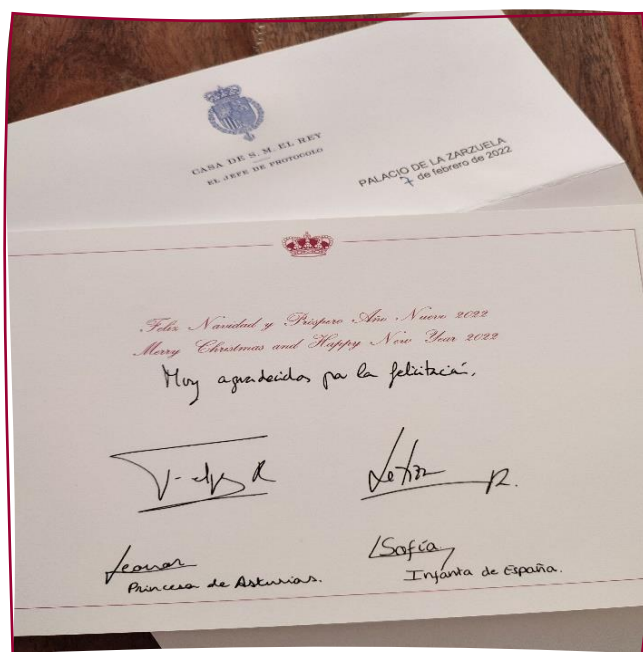 CASA DE S. M. EL REY
EL JEFE DE PROTOCOLO
PALACIO DE LA ZARZUELA
7 de febrero de 2022
Feliz Navidad y Próspero Año Nuevo 2022
Merry Christmas and Happy New Year 2022
Muy agradecidos por la felicitación.
Felipe R
Letizia R.
Leonor
Princesa de Asturias.
Sofía
Infanta de España.